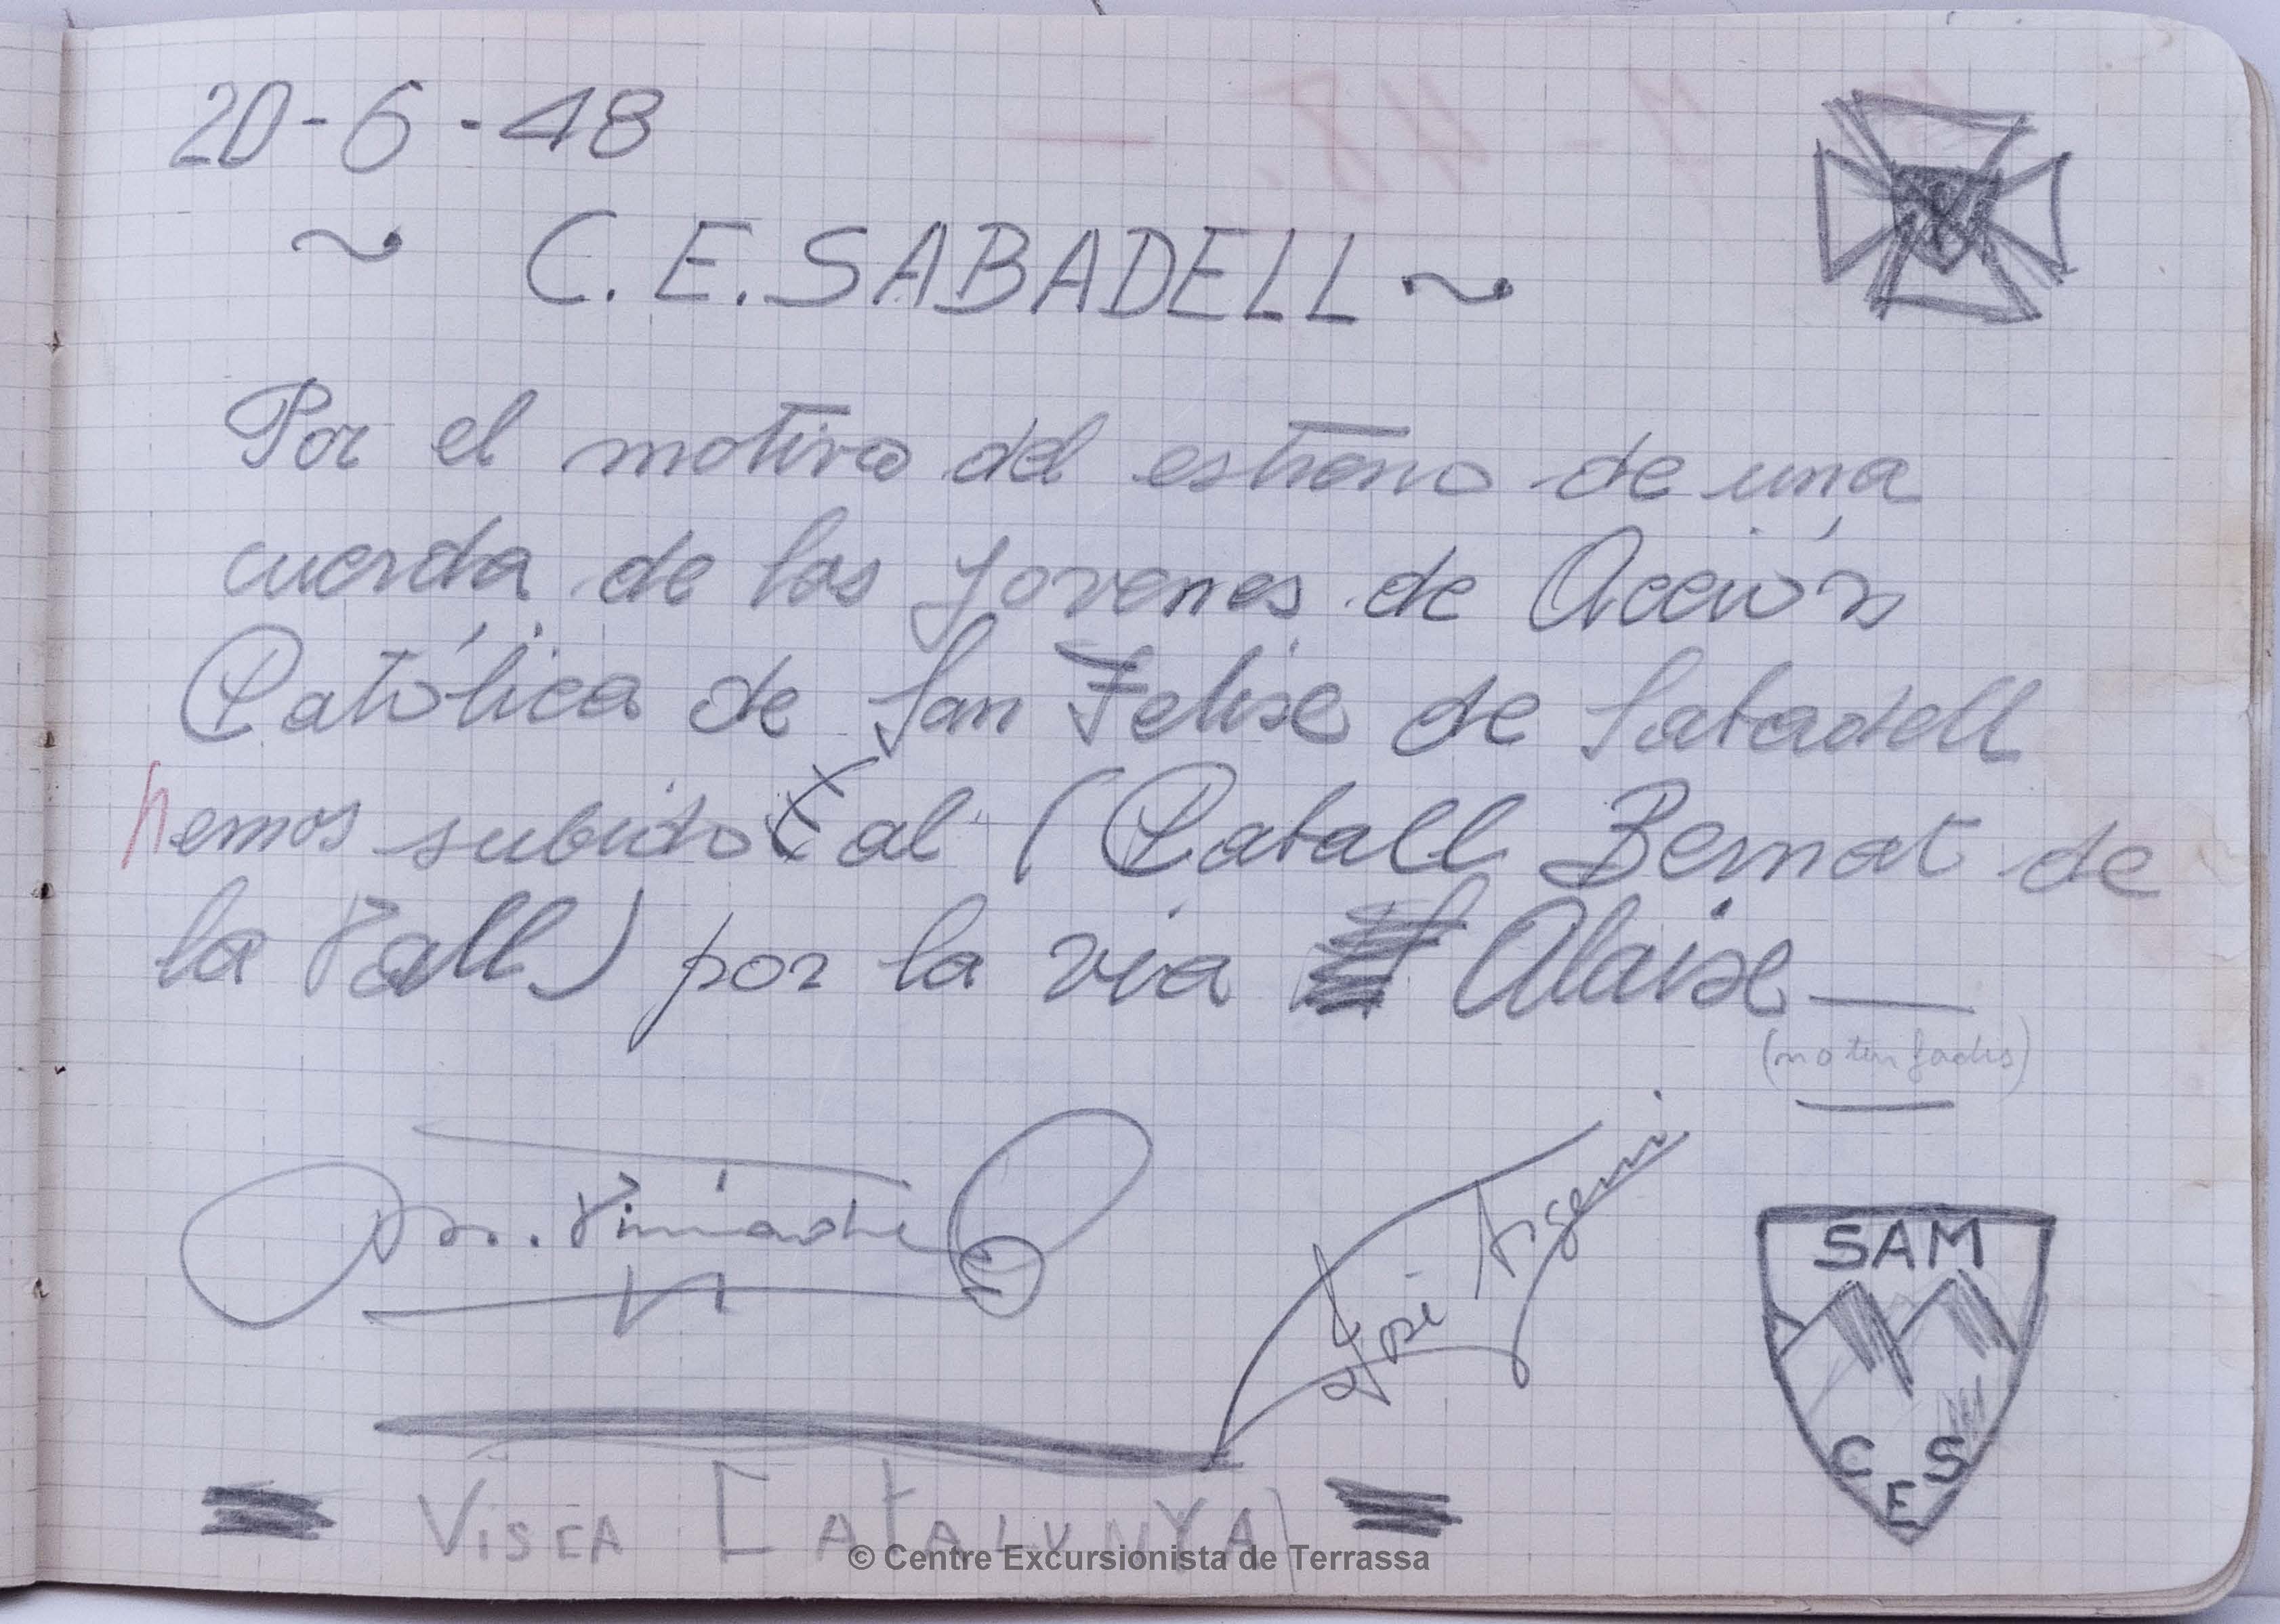 20-6-48
~ C. E. SABADELL ~
Por el motivo del estreno de una
cuerda de los Jovenes de Acción
Católica de San Felise de Sabadell
hemos subido al (Caball Bernat de
la Vall) por la via Alaise
José Argemi
SAM
C E S
Visca CatalunyA
© Centre Excursionista de Terrassa